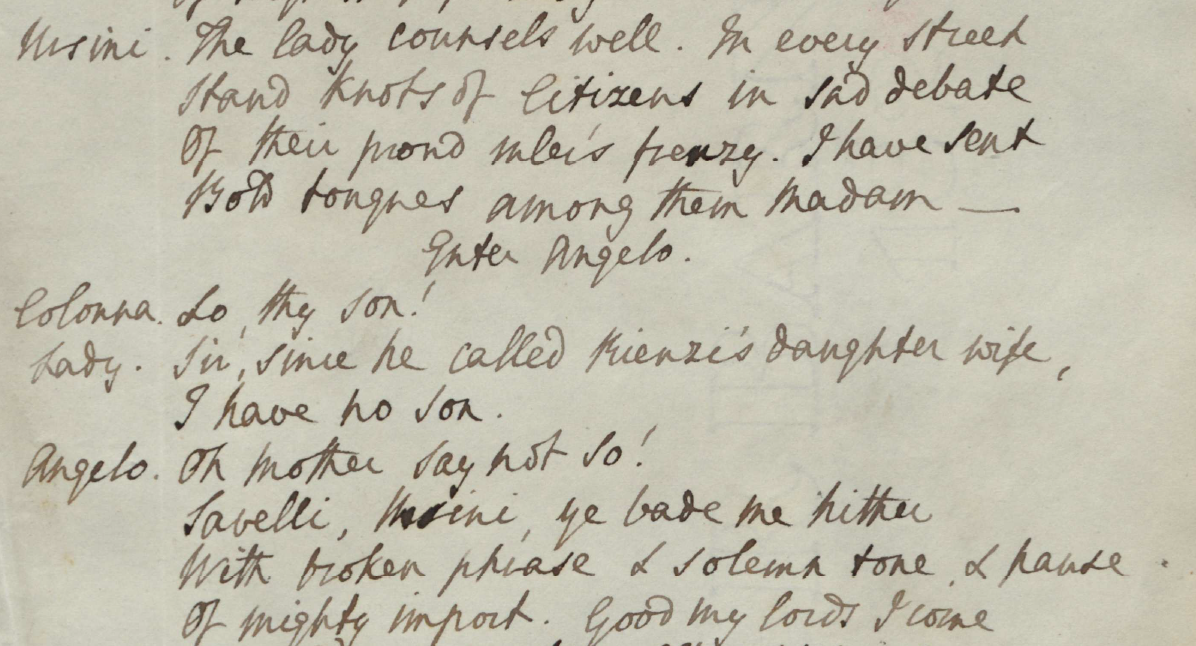 Ursini. The lady counsels well. In every street
Stand knots of Citizens in sad debate
Of their proud ruler's frenzy. I have sent
Bold tongues among them Madam —
Enter Angelo.
Colonna. Lo, thy son!
Lady. Sir, since he called Rienzi's daughter wife,
I have no son.
Angelo. Oh Mother say not so!
Savelli, Ursini, ye bade me hither
With broken phrase & solemn tone, & pause
Of mighty import. Good my lords I come